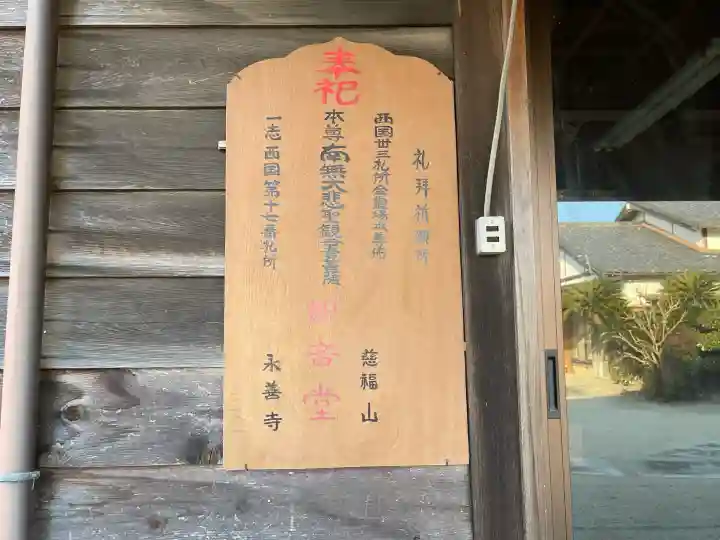 奉祀
礼拝祈願所
西国卅三札所全霊場
慈福山
本尊 南無大悲聖観世音菩薩
観音堂
一志西国第十七番札所
永善寺